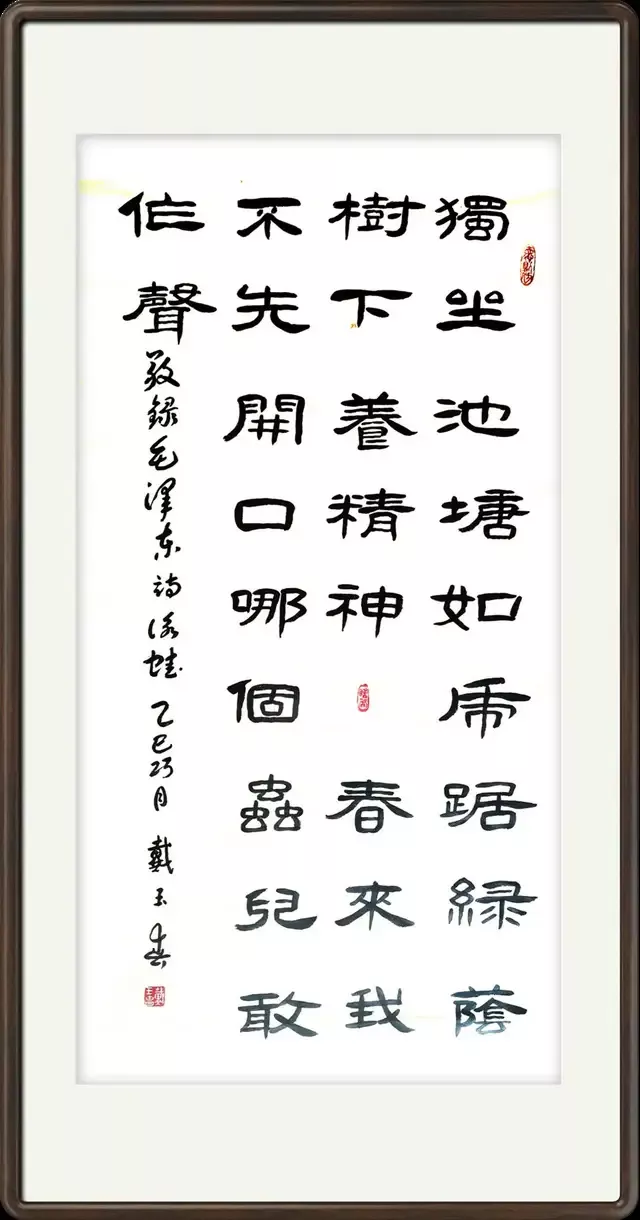 獨坐池塘如虎踞綠蔭
樹下養精神春來我
不先開口哪個蟲兒敢
作聲
敬録毛泽东詩詠蛙乙巳巧月戴玉春